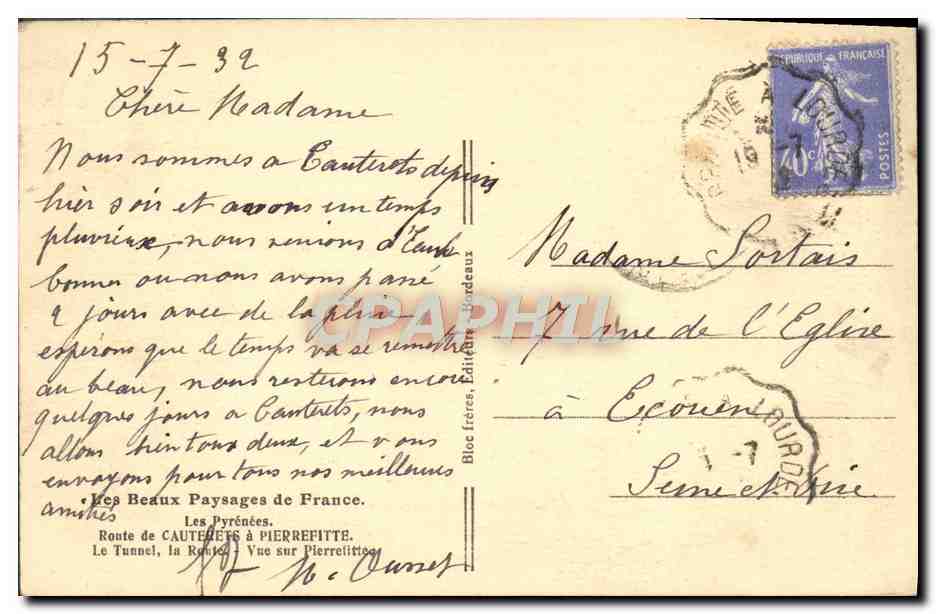 15-7-32
Chère Madame
Nous sommes a Cauterets depuis
hier soir et avons un temps
pluvieux, nous venions d'Eaux
bonnes ou nous avons passé
2 jours avec de la pluie
espérons que le temps va se remettre
au beau, nous resterons encore
quelques jours a Cauterets, nous
allons bien tous deux, et vous
envoyons pour tous nos meilleures
amitiés
Les Beaux Paysages de France.
Les Pyrénées.
Route de CAUTERETS à PIERREFITTE.
Le Tunnel, la Route - Vue sur Pierrefitte
Bloc frères, Editeurs Bordeaux
RÉPUBLIQUE FRANÇAISE
40c
POSTES
LOURDES
-7
Madame Sortais
7 rue de l'Eglise
à Ecouen
Seine et Oise
LOURDE
-7
CPAPHIL